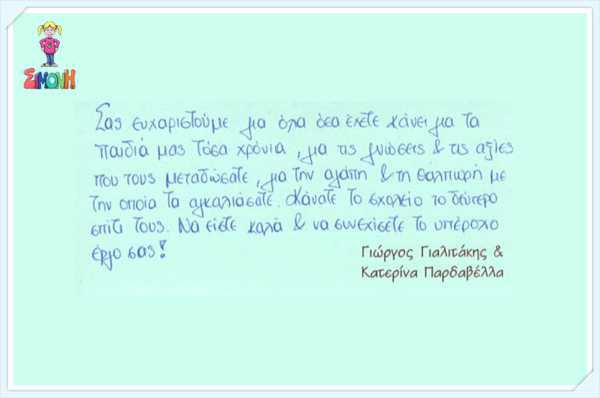 ΣΙΜΟΝΗ
Σας ευχαριστούμε για όλα όσα έχετε κάνει για τα
παιδιά μας τόσα χρόνια, για τις γνώσεις & τις αξίες
που τους μεταδώσατε, για την αγάπη & τη θαλπωρή με
την οποία τα αγκαλιάσατε. Κάνατε το σχολείο το δεύτερο
σπίτι τους. Να είστε καλά & να συνεχίσετε το υπέροχο
έργο σας!
Γιώργος Γιαλιτάκης &
Κατερίνα Παρδαβέλλα